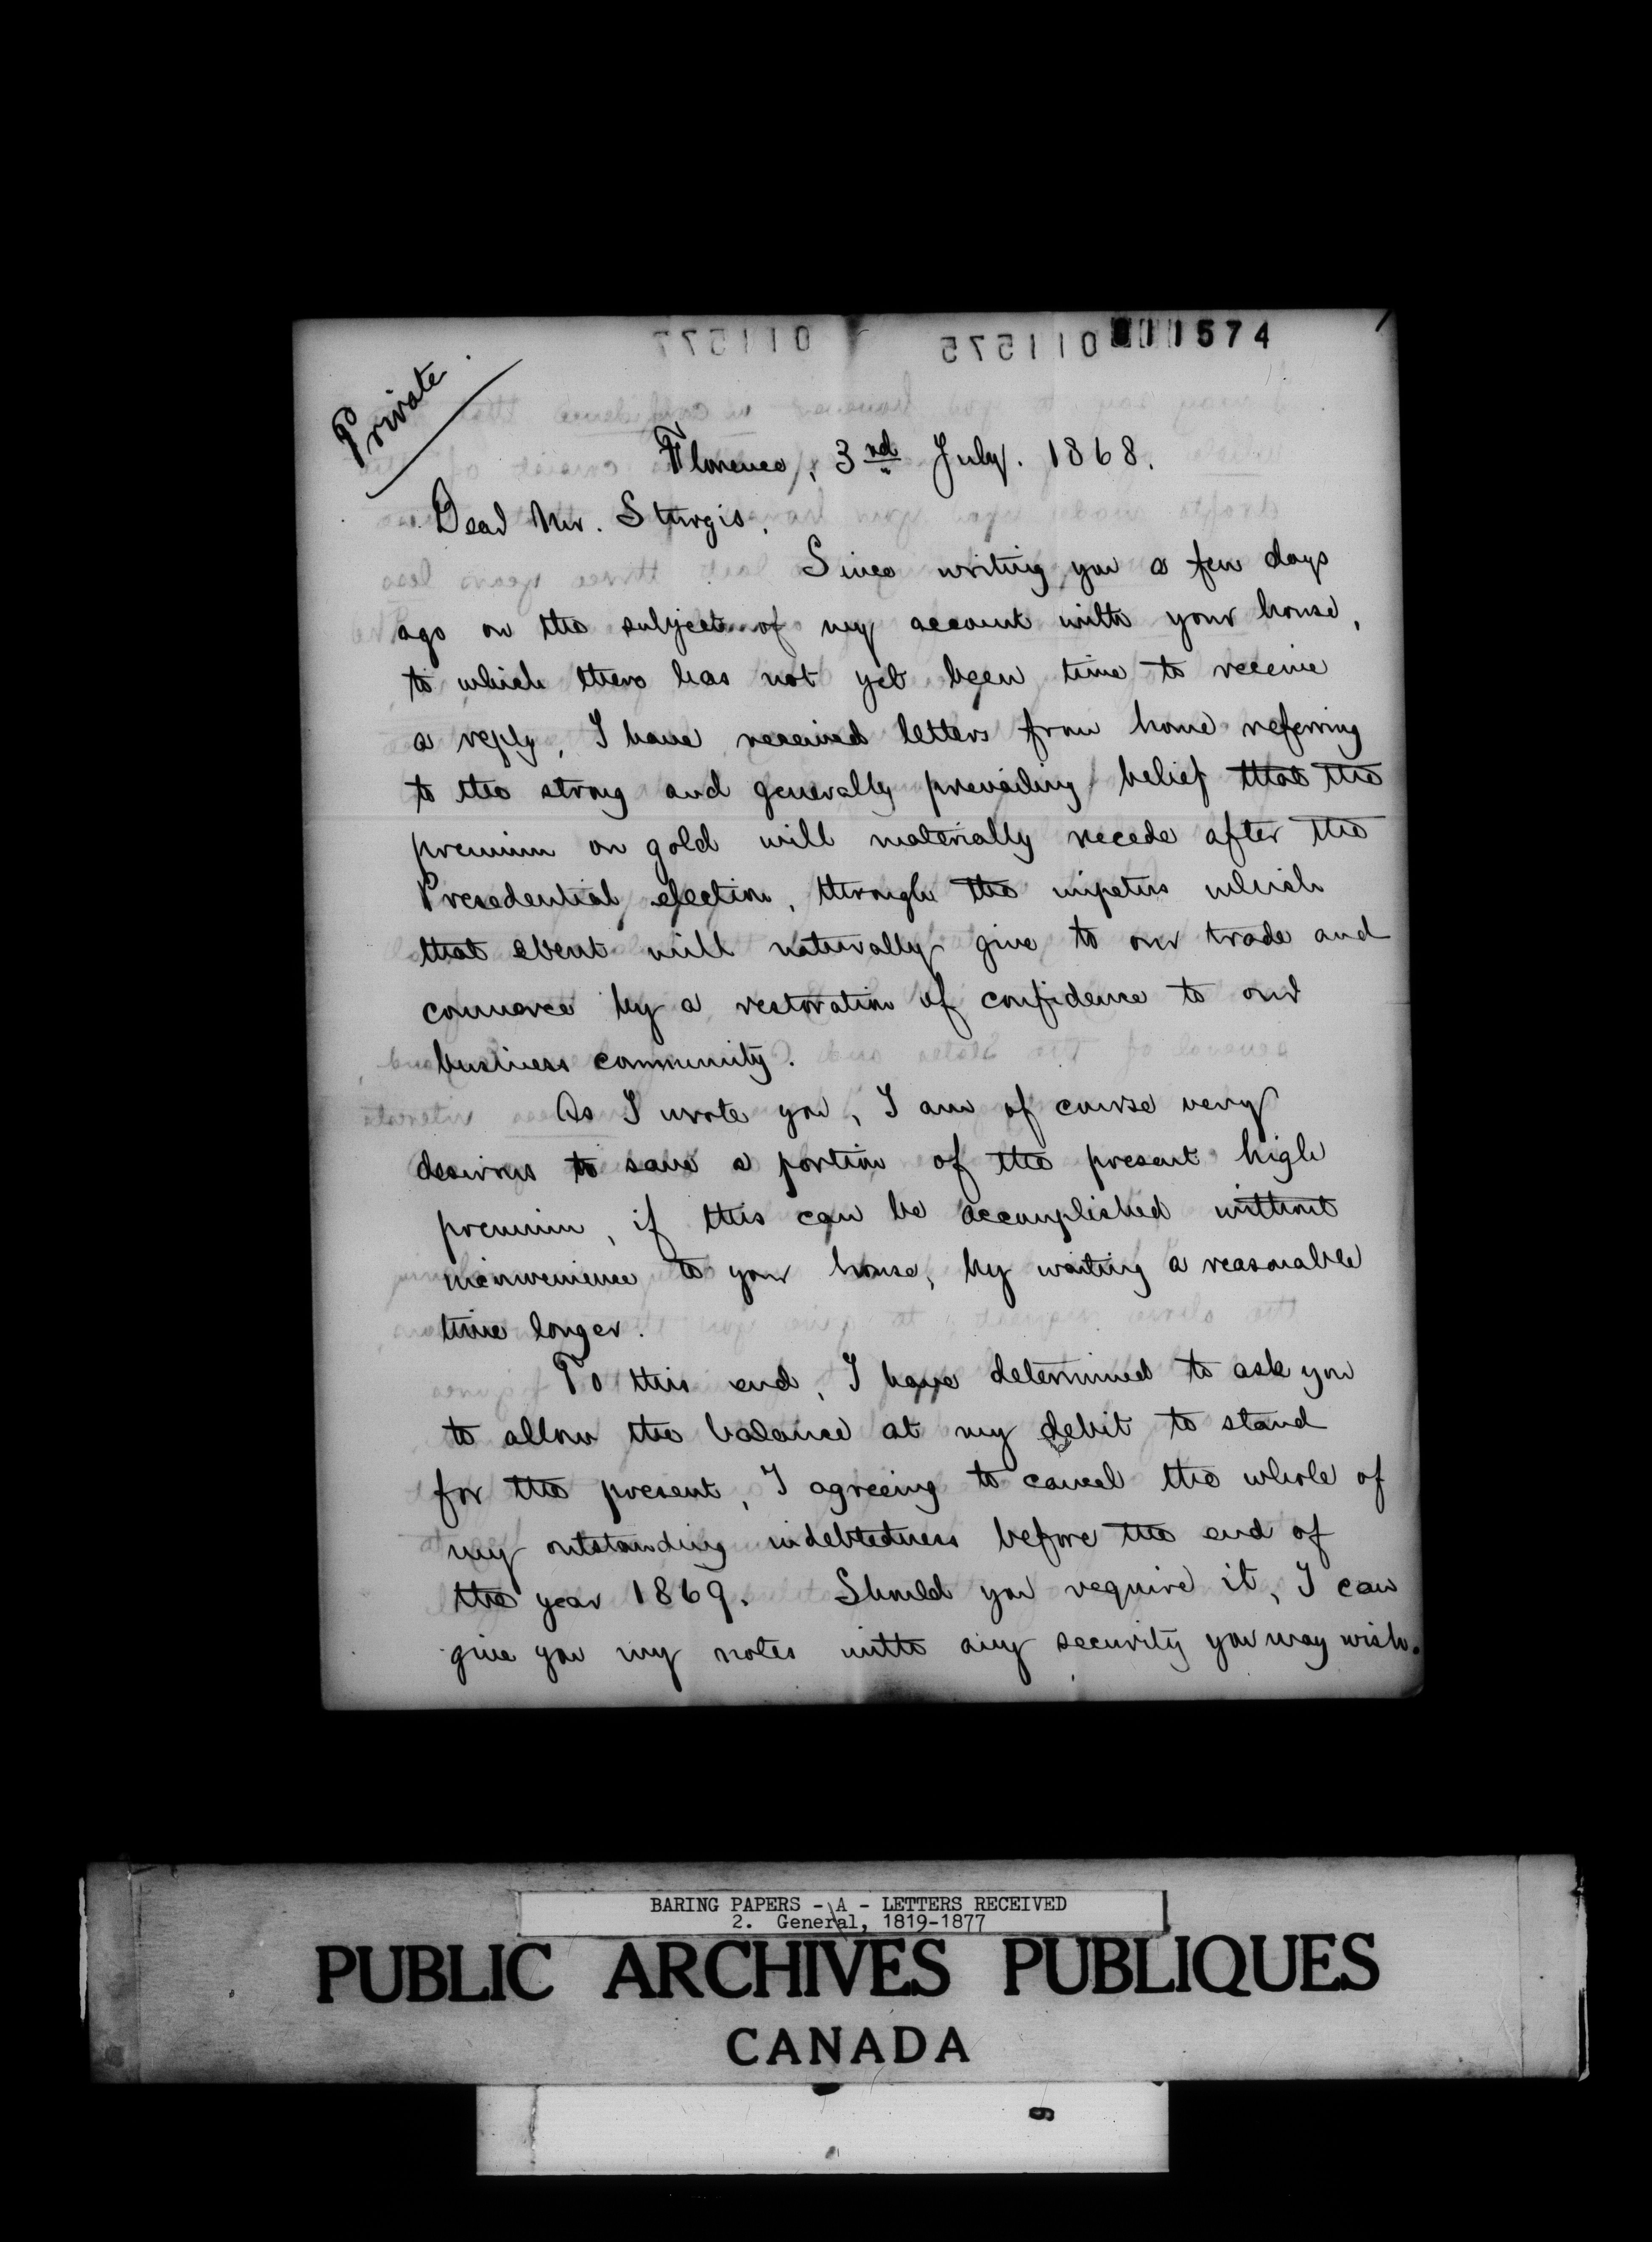 011574
Private.
Florence, 3rd July. 1868.
Dear Mr. Sturgis,
Since writing you a few days
ago on the subject of my account with your house,
to which there has not yet been time to receive
a reply, I have received letters from home referring
to the strong and generally prevailing belief that the
premium on gold will materially recede after the
Presedential election, through the impetus which
that event will naturally give to our trade and
commerce by a restoration of confidence to our
business community.
As I wrote you, I am of course very
desirous to save a portion of the present high
premium, if this can be accomplished without
inconvenience to your house, by waiting a reasonable
time longer.
To this end, I have determined to ask you
to allow the balance at my debit to stand
for the present, I agreeing to cancel the whole of
my outstanding indebtedness before the end of
the year 1869. Should you require it, I can
give you my notes with any security you may wish.
BARING PAPERS - A - LETTERS RECEIVED
2. General, 1819-1877
PUBLIC ARCHIVES PUBLIQUES
CANADA